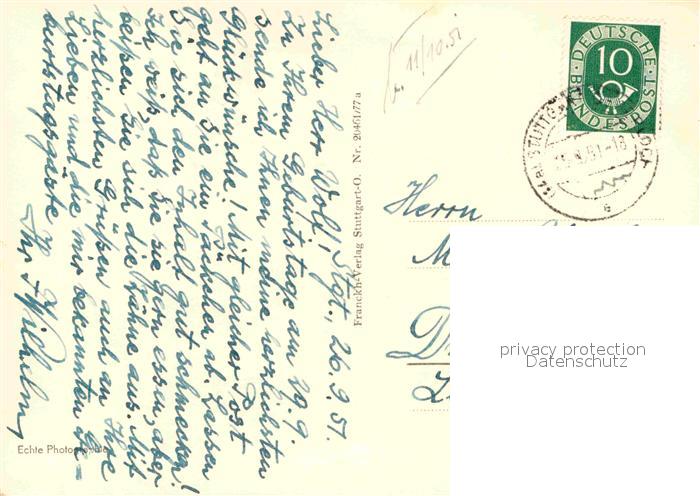 Lieber Herr Wolf, Stgt., 26.9.51.
Zu Ihrem Geburtstage am 29.9.
sende ich Ihnen meine herzlichsten
Glückwünsche! Mit gleicher Post
geht an Sie ein Päckchen ab. Lassen
Sie sich den Inhalt gut schmecken!
Ich weiß, daß Sie sie gern essen, aber
beißen Sie sich die Zähne aus. Mit
herzlichsten Grüßen auch an Ihre
Lieben und die mir bekannten Ge-
burtstagsgäste
Ihr Wilhelm
E. 11/10.51
DEUTSCHE BUNDESPOST
10
STUTTGART
Herrn
Franckh-Verlag Stuttgart-O. Nr. 20461/77 a
Echte Photographie
privacy protection
Datenschutz